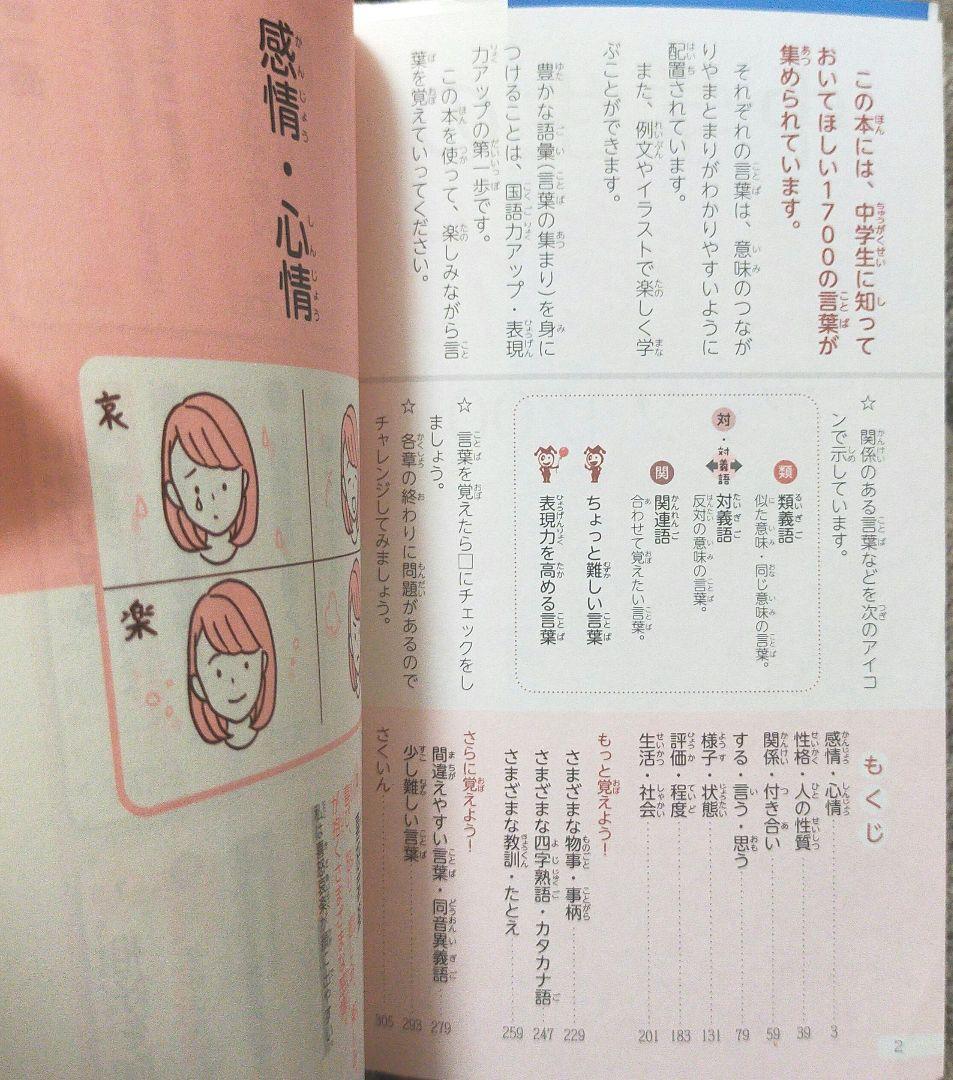 この本には、中学生に知って
おいてほしい1700の言葉が
集められています。
それぞれの言葉は、意味のつなが
りやまとまりがわかりやすいように
配置されています。
また、例文やイラストで楽しく学
ぶことができます。
豊かな語彙(言葉の集まり)を身に
つけることは、国語力アップ・表現
力アップの第一歩です。
この本を使って、楽しみながら言
葉を覚えていってください。
☆ 関係のある言葉などを次のアイコ
ンで示しています。
類 類義語
似た意味・同じ意味の言葉。
対・対義語 対義語
反対の意味の言葉。
関 関連語
合わせて覚えたい言葉。
ちょっと難しい言葉
表現力を高める言葉
☆ 言葉を覚えたら□にチェックをし
ましょう。
☆ 各章の終わりに問題があるので
チャレンジしてみましょう。
もくじ
感情・心情 3
性格・人の性質 39
関係・付き合い 59
する・言う・思う 79
様子・状態 131
評価・程度 183
生活・社会 201
もっと覚えよう!
さまざまな物事・事柄 229
さまざまな四字熟語・カタカナ語 247
さまざまな教訓・たとえ 259
さらに覚えよう!
間違えやすい言葉・同音異義語 279
少し難しい言葉 293
さくいん 305
2
感情・心情
哀
楽